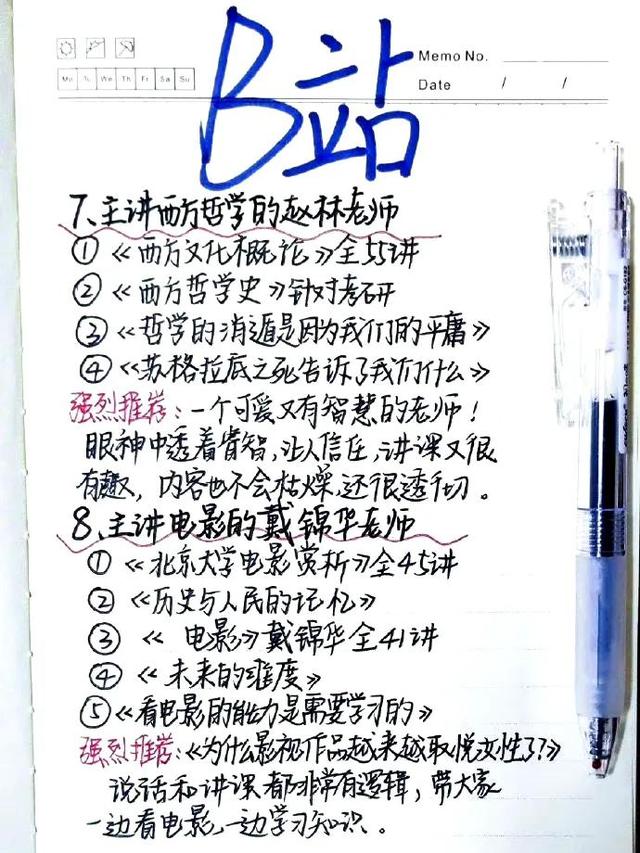 B站
Memo No.
Mo Tu We Th Fr Sa Su
Date / /
7、主讲西方哲学的赵林老师
① 《西方文化概论》全55讲
② 《西方哲学史》针对考研
③ 《哲学的消遁是因为我们的平庸》
④ 《苏格拉底之死告诉了我们什么》
强烈推荐：一个可爱又有智慧的老师！
眼神中透着睿智，让人信任，讲课又很
有趣，内容也不会枯燥，还很透彻。
8、主讲电影的戴锦华老师
① 《北京大学电影赏析》全45讲
② 《历史与人民的记忆》
③ 《 电影》戴锦华全41讲
④ 《 未来的维度》
⑤ 《看电影的能力是需要学习的》
强烈推荐：《为什么影视作品越来越取悦女性了？》
说话和讲课都非常有逻辑，带大家
一边看电影，一边学习知识。